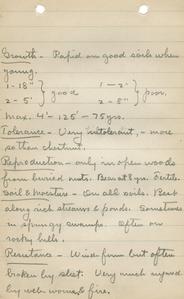 Growth - Rapid on good soils when
young.
1 - 18" } good 1 - 2' } poor.
2 - 5' 2 - 8"
Max. 4' - 125' - 75 yrs.
Tolerance - Very intolerant, - more
so than chestnut.
Reproduction - only in open woods
from buried nuts. Bears at 8 yrs. Fertile.
Soil & moisture - On all soils. Best
along rich streams & ponds. Sometimes
in springy swamps. Often on
rocky hills.
Resistance - Windfirm but often
broken by sleet. Very much injured
by web worms & fire.